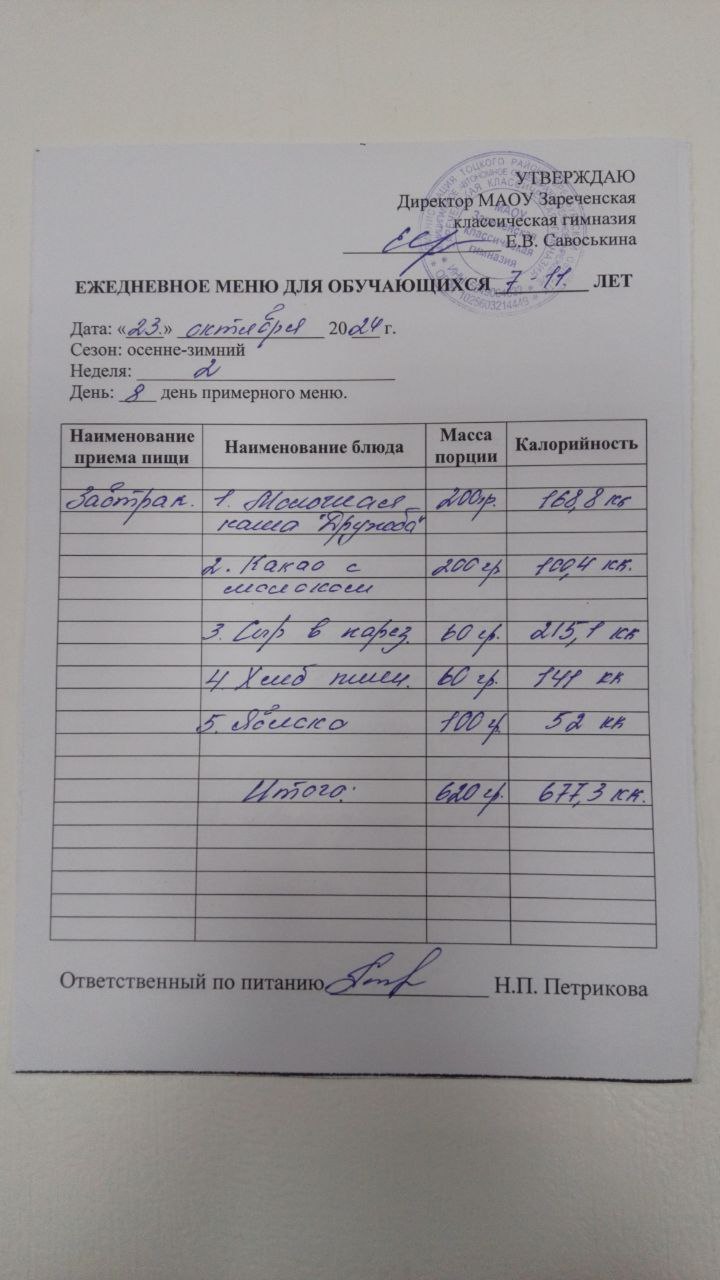 УТВЕРЖДАЮ
Директор МАОУ Зареченская
классическая гимназия
Е.В. Савоськина
МАОУ
Зареченская
классическая
гимназия
1025603214449
ЕЖЕДНЕВНОЕ МЕНЮ ДЛЯ ОБУЧАЮЩИХСЯ 7-11. ЛЕТ
Дата: «23.» октября 2024 г.
Сезон: осенне-зимний
Неделя: 2
День: 8 день примерного меню.
Наименование приема пищи Наименование блюда Масса порции Калорийность
Завтрак. 1. Молочная 200гр. 168,8 кк
каша "Дружба"
2. Какао с 200 гр 100,4 кк.
молоком
3. Сыр в нарез. 60 гр. 215,1 кк
4. Хлеб пшен. 60 гр. 141 кк
5. Яблоко 100 гр 52 кк
Итого: 620 гр. 677,3 кк.
Ответственный по питанию Н.П. Петрикова